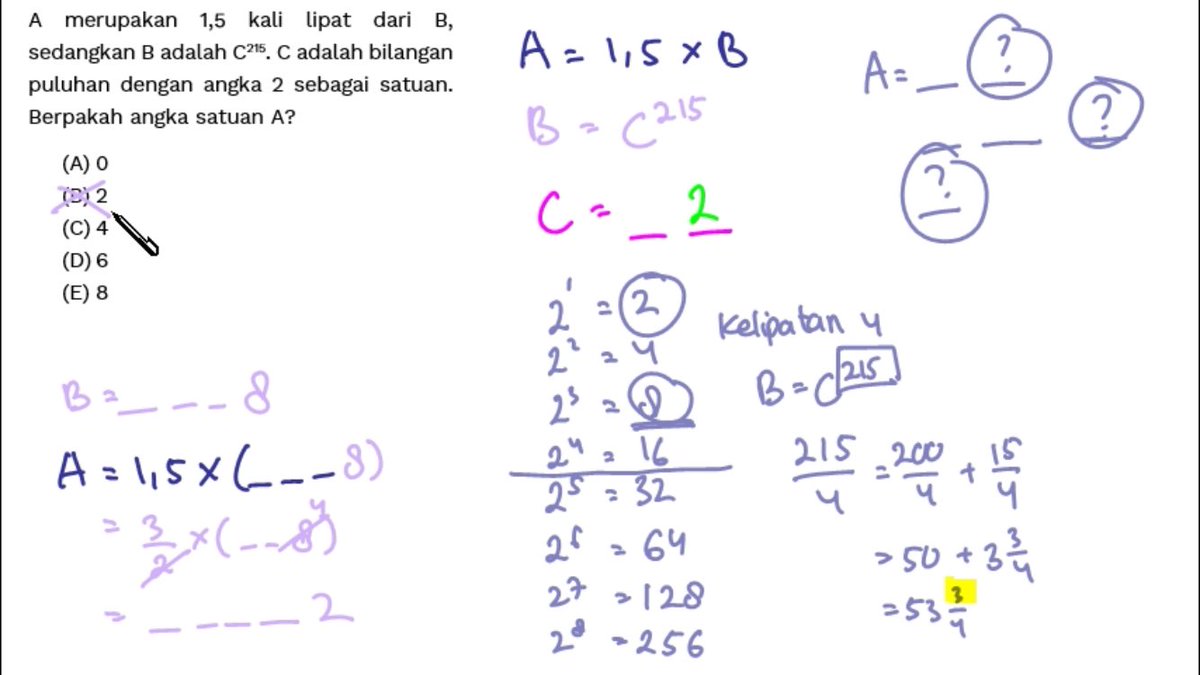 A merupakan 1,5 kali lipat dari B,
sedangkan B adalah C²¹⁵. C adalah bilangan
puluhan dengan angka 2 sebagai satuan.
Berpakah angka satuan A?
(A) 0
(B) 2
(C) 4
(D) 6
(E) 8
B = _ _ _ 8
A = 1,5 × (_ _ _ 8)
= 3/2 × (_ _ 8 4)
= _ _ _ _ 2
A = 1,5 × B
B = C²¹⁵
C = _ 2
2¹ = 2
2² = 4
2³ = 8
2⁴ = 16
2⁵ = 32
2⁶ = 64
2⁷ = 128
2⁸ = 256
A = _ ?
_ _ ?
?
Kelipatan 4
B = C²¹⁵
215/4 = 200/4 + 15/4
= 50 + 3 3/4
= 53 3/4